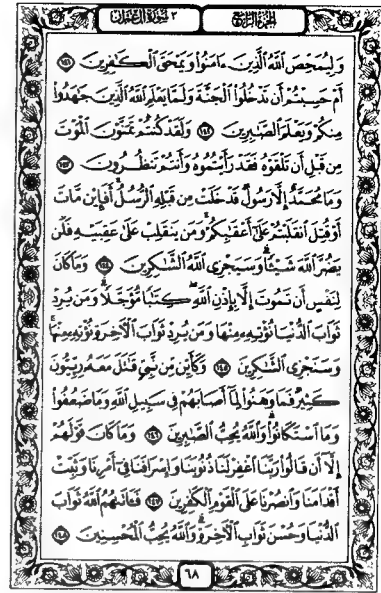 الجزء الرابع
٣ سورة آل عمران
وَلِيُمَحِّصَ ٱللَّهُ ٱلَّذِينَ ءَامَنُوا۟ وَيَمْحَقَ ٱلْكَٰفِرِينَ ١٤١
أَمْ حَسِبْتُمْ أَن تَدْخُلُوا۟ ٱلْجَنَّةَ وَلَمَّا يَعْلَمِ ٱللَّهُ ٱلَّذِينَ جَٰهَدُوا۟
مِنكُمْ وَيَعْلَمَ ٱلصَّٰبِرِينَ ١٤٢ وَلَقَدْ كُنتُمْ تَمَنَّوْنَ ٱلْمَوْتَ
مِن قَبْلِ أَن تَلْقَوْهُ فَقَدْ رَأَيْتُمُوهُ وَأَنتُمْ تَنظُرُونَ ١٤٣
وَمَا مُحَمَّدٌ إِلَّا رَسُولٌ قَدْ خَلَتْ مِن قَبْلِهِ ٱلرُّسُلُ ۚ أَفَإِي۟ن مَّاتَ
أَوْ قُتِلَ ٱنقَلَبْتُمْ عَلَىٰٓ أَعْقَٰبِكُمْ ۚ وَمَن يَنقَلِبْ عَلَىٰ عَقِبَيْهِ فَلَن
يَضُرَّ ٱللَّهَ شَيْـًٔا ۗ وَسَيَجْزِى ٱللَّهُ ٱلشَّٰكِرِينَ ١٤٤ وَمَا كَانَ
لِنَفْسٍ أَن تَمُوتَ إِلَّا بِإِذْنِ ٱللَّهِ كِتَٰبًا مُّؤَجَّلًا ۗ وَمَن يُرِدْ
ثَوَابَ ٱلدُّنْيَا نُؤْتِهِۦ مِنْهَا وَمَن يُرِدْ ثَوَابَ ٱلْـَٔاخِرَةِ نُؤْتِهِۦ مِنْهَا ۚ
وَسَنَجْزِى ٱلشَّٰكِرِينَ ١٤٥ وَكَأَيِّن مِّن نَّبِىٍّ قَٰتَلَ مَعَهُۥ رِبِّيُّونَ
كَثِيرٌ فَمَا وَهَنُوا۟ لِمَآ أَصَابَهُمْ فِى سَبِيلِ ٱللَّهِ وَمَا ضَعُفُوا۟
وَمَا ٱسْتَكَانُوا۟ ۗ وَٱللَّهُ يُحِبُّ ٱلصَّٰبِرِينَ ١٤٦ وَمَا كَانَ قَوْلَهُمْ
إِلَّآ أَن قَالُوا۟ رَبَّنَا ٱغْفِرْ لَنَا ذُنُوبَنَا وَإِسْرَافَنَا فِىٓ أَمْرِنَا وَثَبِّتْ
أَقْدَامَنَا وَٱنصُرْنَا عَلَى ٱلْقَوْمِ ٱلْكَٰفِرِينَ ١٤٧ فَـَٔاتَىٰهُمُ ٱللَّهُ ثَوَابَ
ٱلدُّنْيَا وَحُسْنَ ثَوَابِ ٱلْـَٔاخِرَةِ ۗ وَٱللَّهُ يُحِبُّ ٱلْمُحْسِنِينَ ١٤٨
٦٨